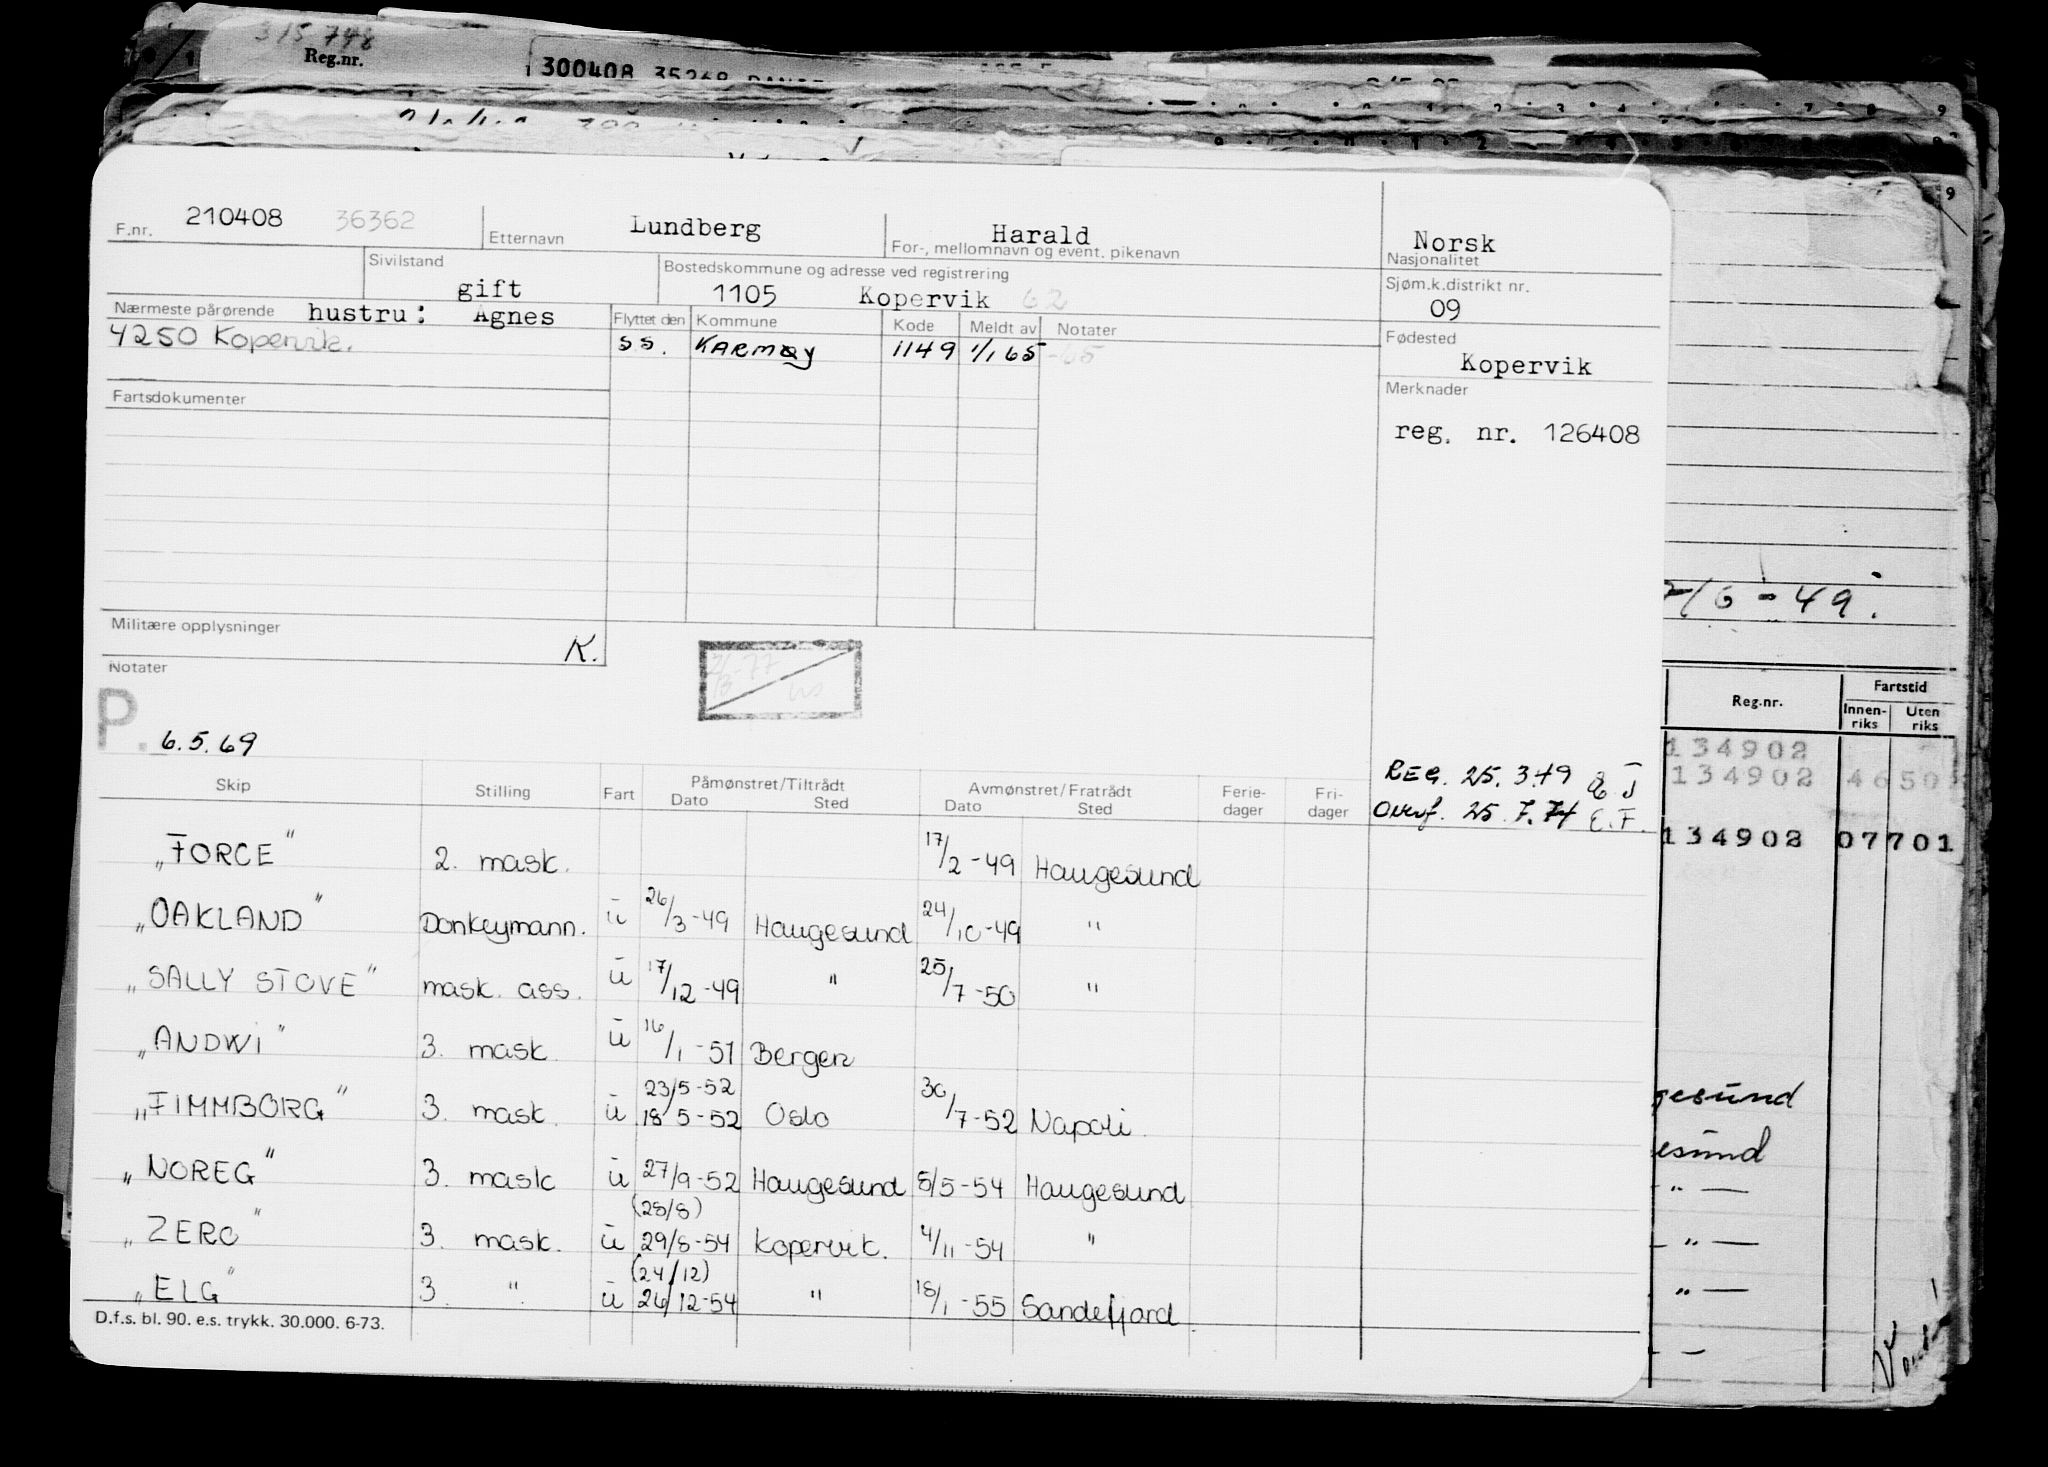 315 748
Reg.nr.
300408 35268
F.nr. 210408 36362 Etternavn Lundberg Harald For-, mellomnavn og event. pikenavn
Norsk
Nasjonalitet
Sivilstand gift
Bostedskommune og adresse ved registrering
1105 Kopervik 62
Sjøm.k.distrikt nr.
09
Nærmeste pårørende hustru: Agnes
4250 Kopervik.
Flyttet den Kommune Kode Meldt av Notater
s.s. KARMØY 1149 1/1 65 -65
Fødested
Kopervik
Merknader
reg. nr. 126408
Fartsdokumenter
Militære opplysninger
K.
Notater
P. 6.5.69
REG. 25.3.49
Overf. 25.7.74 E.F.
Skip Stilling Fart Påmønstret/Tiltrådt Dato Sted Avmønstret/Fratrådt Dato Sted Ferie-dager Fri-dager
„FORCE" 2. mask. 17/2-49 Haugesund
„OAKLAND" Donkeymann. ū 26/3-49 Haugesund 24/10-49 "
„SALLY STOVE" mask. ass. ū 17/12-49 " 25/7-50 "
„ANDWI" 3. mask. ū 16/1-51 Bergen
23/5-52
„FIMMBORG" 3. mask. ū 18/5-52 Oslo 30/7-52 Napoli.
„NOREG" 3. mask ū 27/9-52 Haugesund 8/5-54 Haugesund
(28/8)
„ZERO" 3. mask. ū 29/8-54 Kopervik. 4/11-54 "
(24/12)
„ELG" 3. " ū 26/12-54 " 18/1-55 Sandefjord
D.f.s. bl. 90. e.s. trykk. 30.000. 6-73.
/6-49.
Reg.nr. Fartstid
Innen-riks Uten riks
134902
134902 46 50
134902 07 701
gesund
esund
" —
" —
" —